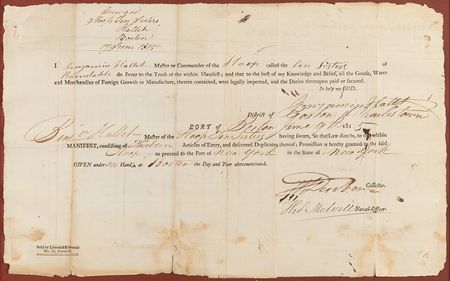 Sloop Ten Sisters
Hallet
Boston
June 1815
I Benjamin Hallet Master or Commander of the Sloop called the Ten Sisters of
Barnstable do swear to the Truth of the within Manifest; and that to the best of my Knowledge and Belief, all the Goods, Wares
and Merchandise of Foreign Growth or Manufacture, therein contained, were legally imported, and the Duties thereupon paid or secured.
So help me GOD.
Benjamin Hallet
District of Boston & Charlestown
PORT of Boston June 1815
Benj Hallet Master of the Sloop Ten Sisters having sworn, as the Law directs, to the within
MANIFEST, consisting of Articles of Entry, and delivered Duplicates thereof; Permission is hereby granted to the said
Sloop to proceed to the Port of New York in the State of New York
GIVEN under our Hands at Boston the Day and Year abovementioned.
Collector.
Thos Melvill Naval-Officer.
Sold by Lincoln & Edmands
No. 53, Cornhill